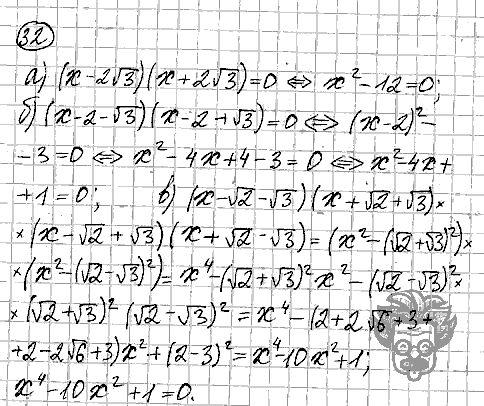 32
а) (x-2√3)(x+2√3)=0 ⇔ x²-12=0;
б) (x-2-√3)(x-2+√3)=0 ⇔ (x-2)²-
-3=0 ⇔ x²-4x+4-3=0 ⇔ x²-4x+
+1=0; в) (x-√2-√3)(x+√2+√3)×
×(x-√2+√3)(x+√2-√3)=(x²-(√2+√3)²)×
×(x²-(√2-√3)²)=x⁴-(√2+√3)²x²-(√2-√3)²×
×(√2+√3)²(√2-√3)²=x⁴-(2+2√6+3+
+2-2√6+3)x²+(2-3)²=x⁴-10x²+1;
x⁴-10x²+1=0.